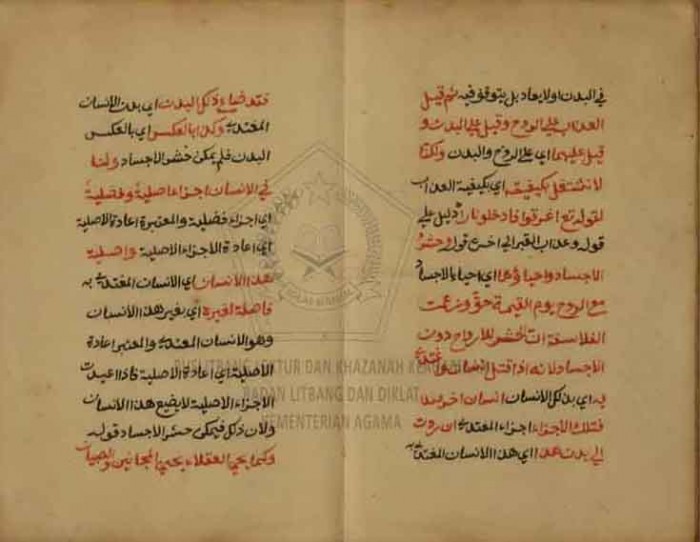 في البدن او لا يعاد بل يتوقف فيه ثم قيل
العذاب على الروح وقيل على البدن و
قيل عليهما اي على الروح والبدن ولكنا
لا نشتغل بكيفيته اي بكيفية العذاب
لقوله تع اغرقوا فادخلوا نارا دليل على
قوله وعذاب القبر الى اخره قوله وحشر
الاجساد واحياؤها اي احياء الاجساد
مع الروح يوم القيمة حق وزعمت
الفلاسفة ان الحشر للارواح دون
الاجساد لانه اذا قتل انسان واغتذى
به اي بذلك الانسان انسان اخر
فتلك الاجزاء اجزاء المغتذى ان ردت
الى بدن هذا اي هذا الانسان المغتذى به
فقد ضاع ذلك البدن اي بدن الانسان
المغتذى وكذا بالعكس اي بالعكس
البدن فلم يمكن حشر الاجساد ولنا
في الانسان اجزاء اصلية وفضلية
اي اجزاء فضلية والمعتبرة اعادة الاصلية
اي اعادة الاجزاء الاصلية واصلية
هذا الانسان اي الانسان المغتذى به
فاضلة لغيره اي بغير هذا الانسان
وهو الانسان المغتذى والمعتبر اعادة
الاصلية اي اعادة الاصلية فاذا اعيدت
الاجزاء الاصلية لا يضيع هذا الانسان
ولا ذلك فيمكن حشر الاجساد قوله
وكما يحيى العقلاء يحيى المجانين والصبيان
PUSLITBANG LEKTUR DAN KHAZANAH
BADAN LITBANG DAN DIKLAT
KEMENTERIAN AGAMA